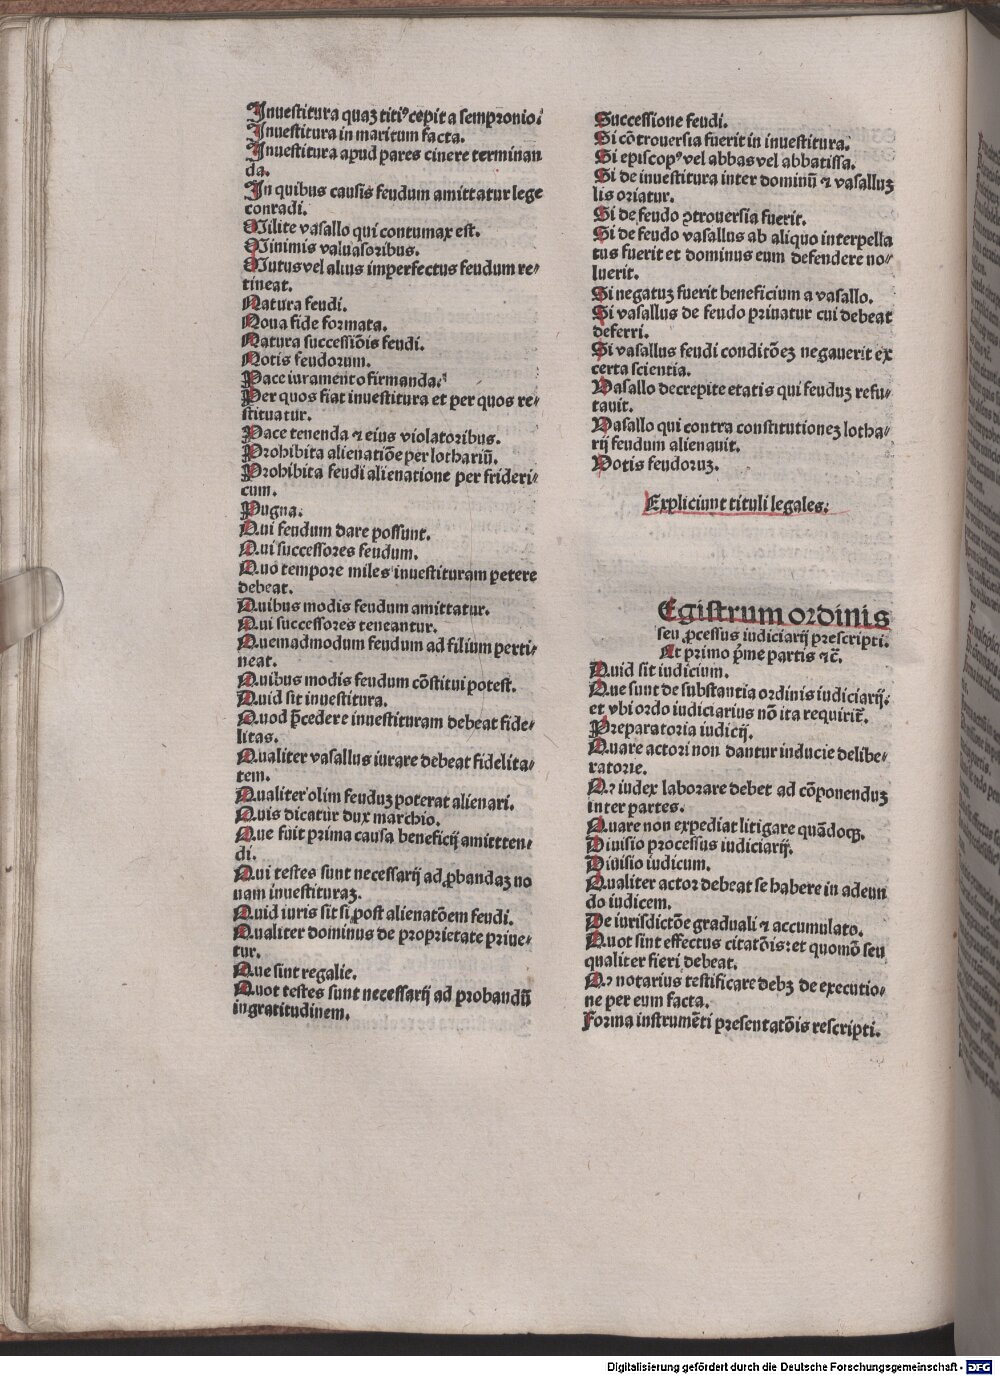 Inuestitura quaꝫ titiꝰ cepit a sempronio.
Inuestitura in maritum facta.
Inuestitura apud pares cinere terminan
da.
In quibus causis feudum amittatur lege
conradi.
Milite vasallo qui contumax est.
Minimis valuasoribus.
Mutus vel alius imperfectus feudum re⸗
tineat.
Natura feudi.
Noua fide formata.
Natura successiōis feudi.
Notis feudorum.
Pace iuramento firmanda.
Per quos fiat inuestitura et per quos re⸗
stituatur.
Pace tenenda ⁊ eius violatoribus.
Prohibita alienatiōe per lothariū.
Prohibita feudi alienatione per frideri⸗
cum.
Pugna.
Qui feudum dare possunt.
Qui successores feudum.
Quo tempore miles inuestituram petere
debeat.
Quibus modis feudum amittatur.
Qui successores teneantur.
Quemadmodum feudum ad filium perti⸗
neat.
Quibus modis feudum cōstitui potest.
Quid sit inuestitura.
Quod p̄cedere inuestituram debeat fide⸗
litas.
Qualiter vasallus iurare debeat fidelita⸗
tem.
Qualiter olim feuduꝫ poterat alienari.
Quis dicatur dux marchio.
Que fuit prima causa beneficij amittten⸗
di.
Qui testes sunt necessarij ad ꝓbandaꝫ no
uam inuestituraꝫ.
Quid iuris sit si post alienatōem feudi.
Qualiter dominus de proprietate priue⸗
tur.
Que sint regalie.
Quot testes sunt necessarij ad probandū
ingratitudinem.
Successione feudi.
Si cōtrouersia fuerit in inuestitura.
Si episcopꝰ vel abbas vel abbatissa.
Si de inuestitura inter dominū ⁊ vasalluꝫ
lis oriatur.
Si de feudo ꝯtrouersia fuerit.
Si de feudo vasallus ab aliquo interpella
tus fuerit et dominus eum defendere no⸗
luerit.
Si negatuꝫ fuerit beneficium a vasallo.
Si vasallus de feudo priuatur cui debeat
deferri.
Si vasallus feudi conditōeꝫ negauerit ex
certa scientia.
Vasallo decrepite etatis qui feuduꝫ refu⸗
tauit.
Vasallo qui contra constitutioneꝫ lotha⸗
rij feudum alienauit.
Votis feudoruꝫ.
Expliciunt tituli legales.
Egistrum ordinis
seu ꝓcessus iudiciarij prescripti.
Et primo p̄me partis ⁊c̄.
Quid sit iudicium.
Que sunt de substantia ordinis iudiciarij.
et vbi ordo iudiciarius nō ita requirit̄.
Preparatoria iudicij.
Quare actori non dantur inducie delibe⸗
ratorie.
Qꝫ iudex laborare debet ad cōponenduꝫ
inter partes.
Quare non expediat litigare quādoqꝫ.
Diuisio processus iudiciarij.
Diuisio iudicum.
Qualiter actor debeat se habere in adeun
do iudicem.
De iurisdictōe graduali ⁊ accumulato.
Quot sint effectus citatōis: et quomō seu
qualiter fieri debeat.
Qꝫ notarius testificare debꝫ de executio⸗
ne per eum facta.
Forma instrumēti presentatōis rescripti.
Digitalisierung gefördert durch die Deutsche Forschungsgemeinschaft - DFG